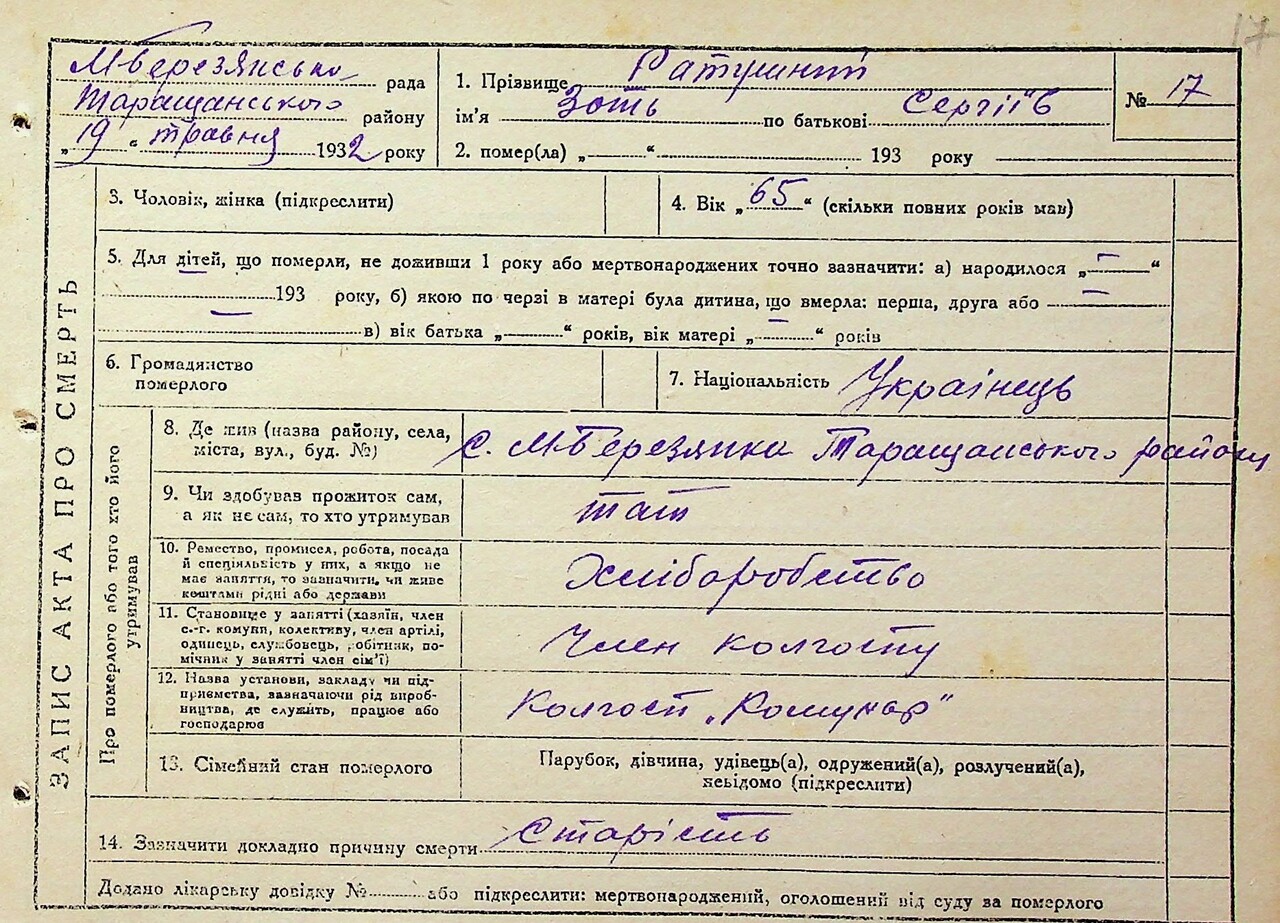 17
М Березянсько рада
Таращанського району
„19“ травня 1932 року
1. Прізвище Ратушний
ім'я Зоть по батькові Сергіїв
2. помер(ла) „ “ 193 року
№ 17
ЗАПИС АКТА ПРО СМЕРТЬ
3. Чоловік, жінка (підкреслити)
4. Вік „65“ (скільки повних років мав)
5. Для дітей, що померли, не доживши 1 року або мертвонароджених точно зазначити: а) народилося „—“
193 року, б) якою по черзі в матері була дитина, що вмерла: перша, друга або —
— в) вік батька „ “ років, вік матері „—“ років
6. Громадянство
померлого
7. Національність Українець
Про померлого або того хто його
утримував
8. Де жив (назва району, села,
міста, вул., буд. №)
С. М-Березянка Таращанського району
9. Чи здобував прожиток сам,
а як не сам, то хто утримував
10. Ремество, промисел, робота, посада
й спеціяльність у них, а якщо не
має заняття, то зазначити, чи живе
коштами рідні або держави
Хліборобство
11. Становище у занятті (хазяїн, член
с.-г. комуни, колективу, член артілі,
одинець, службовець, робітник, по-
мічник у занятті член сім'ї)
Член колгоспу
12. Назва установи, закладу чи під-
приємства, зазначаючи рід вироб-
ництва, де служить, працює або
господарює
Колгосп „Комунар"
13. Сімейний стан померлого
Парубок, дівчина, удівець(а), одружений(а), розлучений(а),
невідомо (підкреслити)
14. Зазначити докладно причину смерти Старість
Додано лікарську довідку № або підкреслити: мертвонароджений, оголошений від суду за померлого